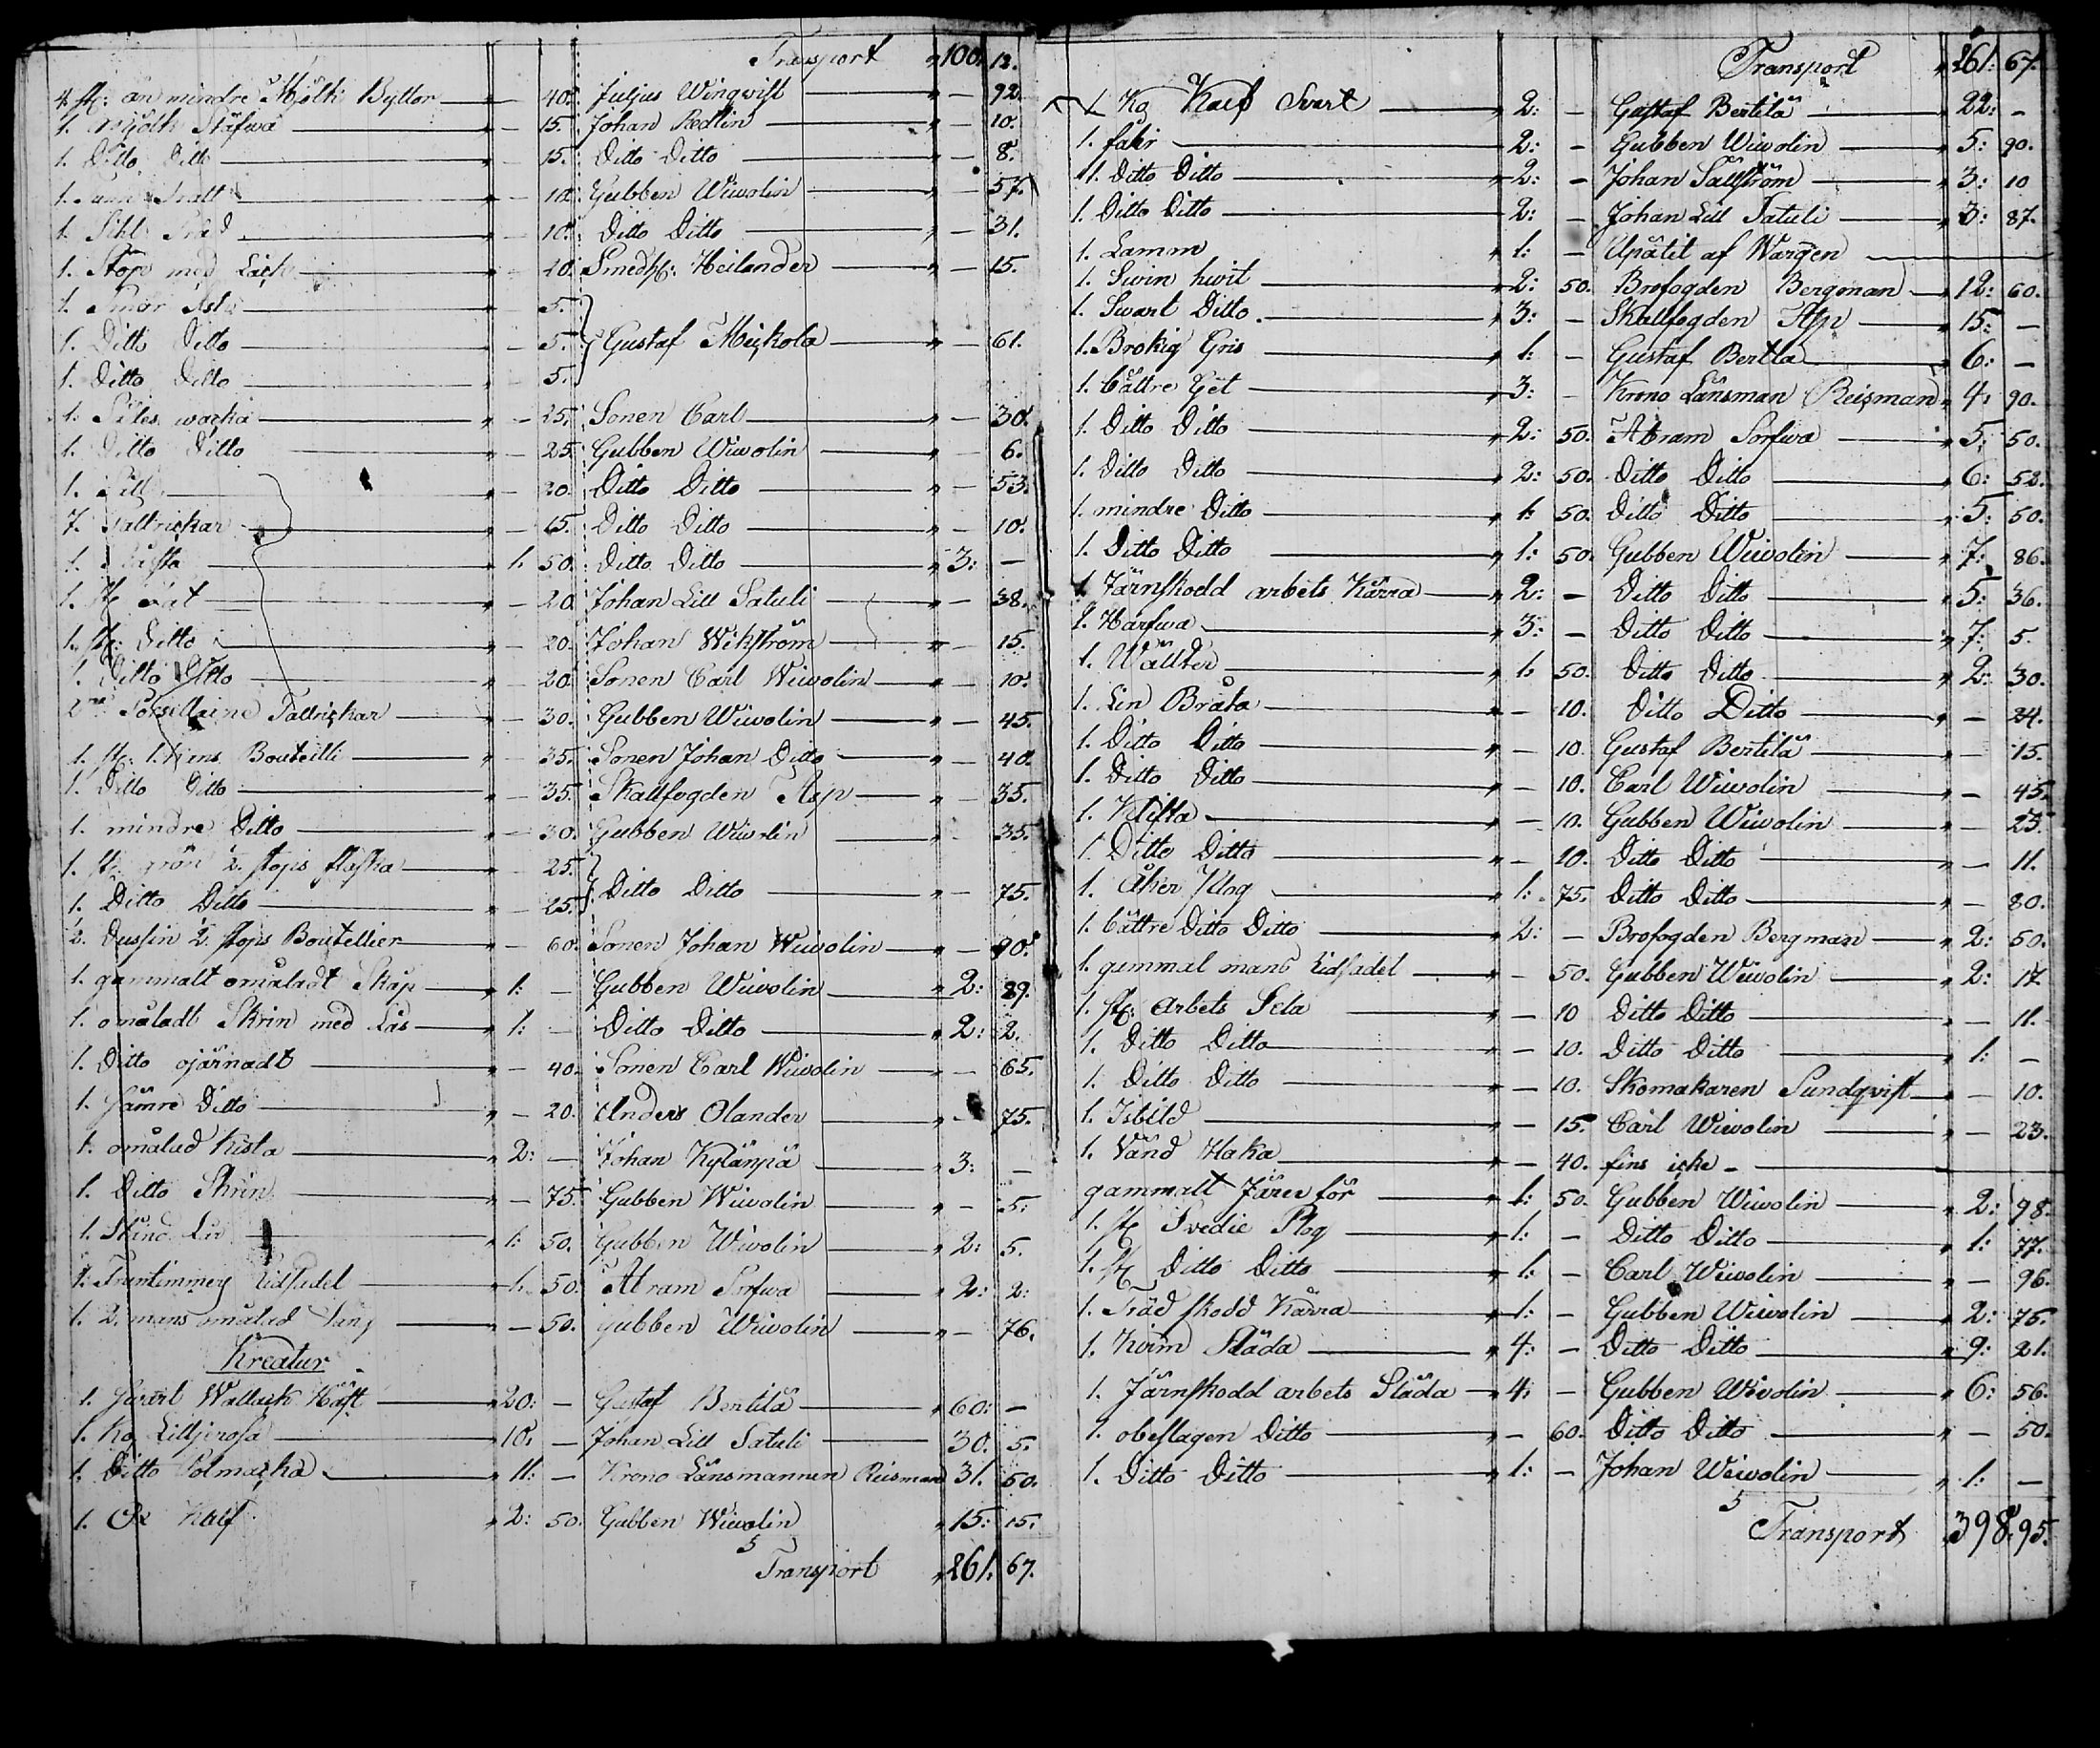 Transport " 100. 12.
4 st: än mindre Mjölk Byttor " — 40. Juljus Wingvist " — 92.
1. Mjölk Stäfwa " — 15. Johan Redlin " — 10.
1. Ditto Ditto " — 15. Ditto Ditto " — 8.
1. Tratt " — 10. Gubben Wiwolin " — 57.
1. " — 10. Ditto Ditto " — 31.
1. Stop med Låck " — 20. Smeds: Heilander " — 15.
1. Smör Ask " — 5.
1. Ditto Ditto " — 5. Gustaf Mickola " — 61.
1. Ditto Ditto " — 5.
1. wacka " — 25. Sonen Carl " — 30.
1. Ditto Ditto — 25. Gubben Wiwolin " — 6.
1. " — 20. Ditto Ditto " — 53.
7. Tallrickar " — 15. Ditto Ditto " — 10.
1. 1. 50. Ditto Ditto " 3: —
1. st " — 20. Johan Lill Satuli " — 38.
1. st: Ditto " — 20. Johan Wikström " — 15.
1. Ditto Ditto " — 20. Sonen Carl Wiwolin " — 10.
2 Porsellaine Tallrickar " — 30. Gubben Wiwolin " — 45.
1. st: Bouteilli " — 35. Sonen Johan Ditto " — 40.
1. Ditto Ditto " — 35. Skallfogden Asp " — 35.
1. mindre Ditto " — 30. Gubben Wiwolin " — 35.
1. st: grön 2. stops flaska " — 25.
1. Ditto Ditto " — 25. Ditto Ditto " — 75.
2. Dussin 2. stops Boutellier " — 60. Sonen Johan Wiwolin " — 90.
1. gammalt omåladt Skåp " 1: — Gubben Wiwolin " 2: 89.
1. omåladt Skrin med Lås " 1: — Ditto Ditto " 2: 2.
1. Ditto ojärnadt " — 40. Sonen Carl Wiwolin " — 65.
1. sämre Ditto " — 20. Anders Olander " — 75.
1. omålad Kista " 2: — Johan Kylänpä " 3: —
1. Ditto Skrin " — 75. Gubben Wiwolin " — 5.
1. " 1: 50. Gubben Wiwolin " 2: 5.
1. Fruntimmers Lidsadel " 1. 50. Abram Sorfwa " 2: 2:
1. 2. mans omålad Säng " — 50. Gubben Wiwolin " — 76.
Kreatur
1. swart Wallack Häst " 20: — Gustaf Bertilä " 60: —
1. Ko Lilljerosa " 10. — Johan Lill Satuli 30. 5.
1. Ditto Wolmacka " 11: — Krono Länsmannen Reisman 31. 50.
1. Ox Kalf " 2: 50. Gubben Wiwolin " 15: 15.
Transport " 261. 67.
Transport " 261: 67.
1. Ko Kalf Svart " 2: — Gustaf Bertilä " 22: —
1. fåhr " 2: — Gubben Wiwolin " 5: 90.
1. Ditto Ditto " 2: — Johan Sällström " 3: 10
1. Ditto Ditto " 2: — Johan Lill Satuli " 3: 87.
1. Lamm " 1: — Upätit af Wargen
1. Swin hwit " 2: 50. Brofogden Bergman " 12: 60.
1. Swart Ditto " 3: — Skallfogden Asp " 15: —
1. Brokig Gris " 1: — Gustaf Bertla " 6: —
1. bättre Get " 3: — Krono Länsman Reisman " 4. 90.
1. Ditto Ditto " 2: 50. Abram Sorfwa " 5. 50.
1. Ditto Ditto " 2: 50. Ditto Ditto " 6: 52.
1. mindre Ditto " 1: 50. Ditto Ditto " 5: 50.
1. Ditto Ditto " 1: 50. Gubben Wiwolin " 7: 86.
1. Järnskodd arbets Kärra " 2: — Ditto Ditto " 5: 36.
1. Harfwa " 3: — Ditto Ditto " 7: 5.
1. Wältter " 1. 50. Ditto Ditto " 2: 30.
1. Lin Bråta " — 10. Ditto Ditto " — 24.
1. Ditto Ditto " — 10. Gustaf Bertilä " — 15.
1. Ditto Ditto " — 10. Carl Wiwolin " — 45.
1. Klifta " — 10. Gubben Wiwolin " — 25.
1. Ditto Ditto " — 10. Ditto Ditto " — 11.
1. Åker Plog " 1: 75. Ditto Ditto " — 80.
1. bättre Ditto Ditto " 2: — Brofogden Bergman " 2: 50.
1. gammal mans Lidsadel " — 50. Gubben Wiwolin " 2: 17.
1. st: Arbets Sela " — 10 Ditto Ditto " — 11.
1. Ditto Ditto " — 10. Ditto Ditto " 1: —
1. Ditto Ditto " — 10. Skomakaren Sundqvist " — 10.
1. Isbild " — 15. Carl Wiwolin " — 23.
1. Vänd Haka " — 40. fins icke
gammalt Järn för " 1: 50. Gubben Wiwolin " 2: 98.
1. st Svedie Plog " 1: — Ditto Ditto " 1: 77.
1. st Ditto Ditto " 1: — Carl Wiwolin " — 96.
1. Träd skodd Kärra " 1: — Gubben Wiwolin " 2: 75.
1. Korin Släda " 4: — Ditto Ditto " 9: 21.
1. Järnskodd arbets Släda " 4. — Gubben Wiwolin " 6: 56.
1. obeslagen Ditto " — 60. Ditto Ditto " — 50.
1. Ditto Ditto " 1: — Johan Wiwolin " 1: —
Transport 398. 95.